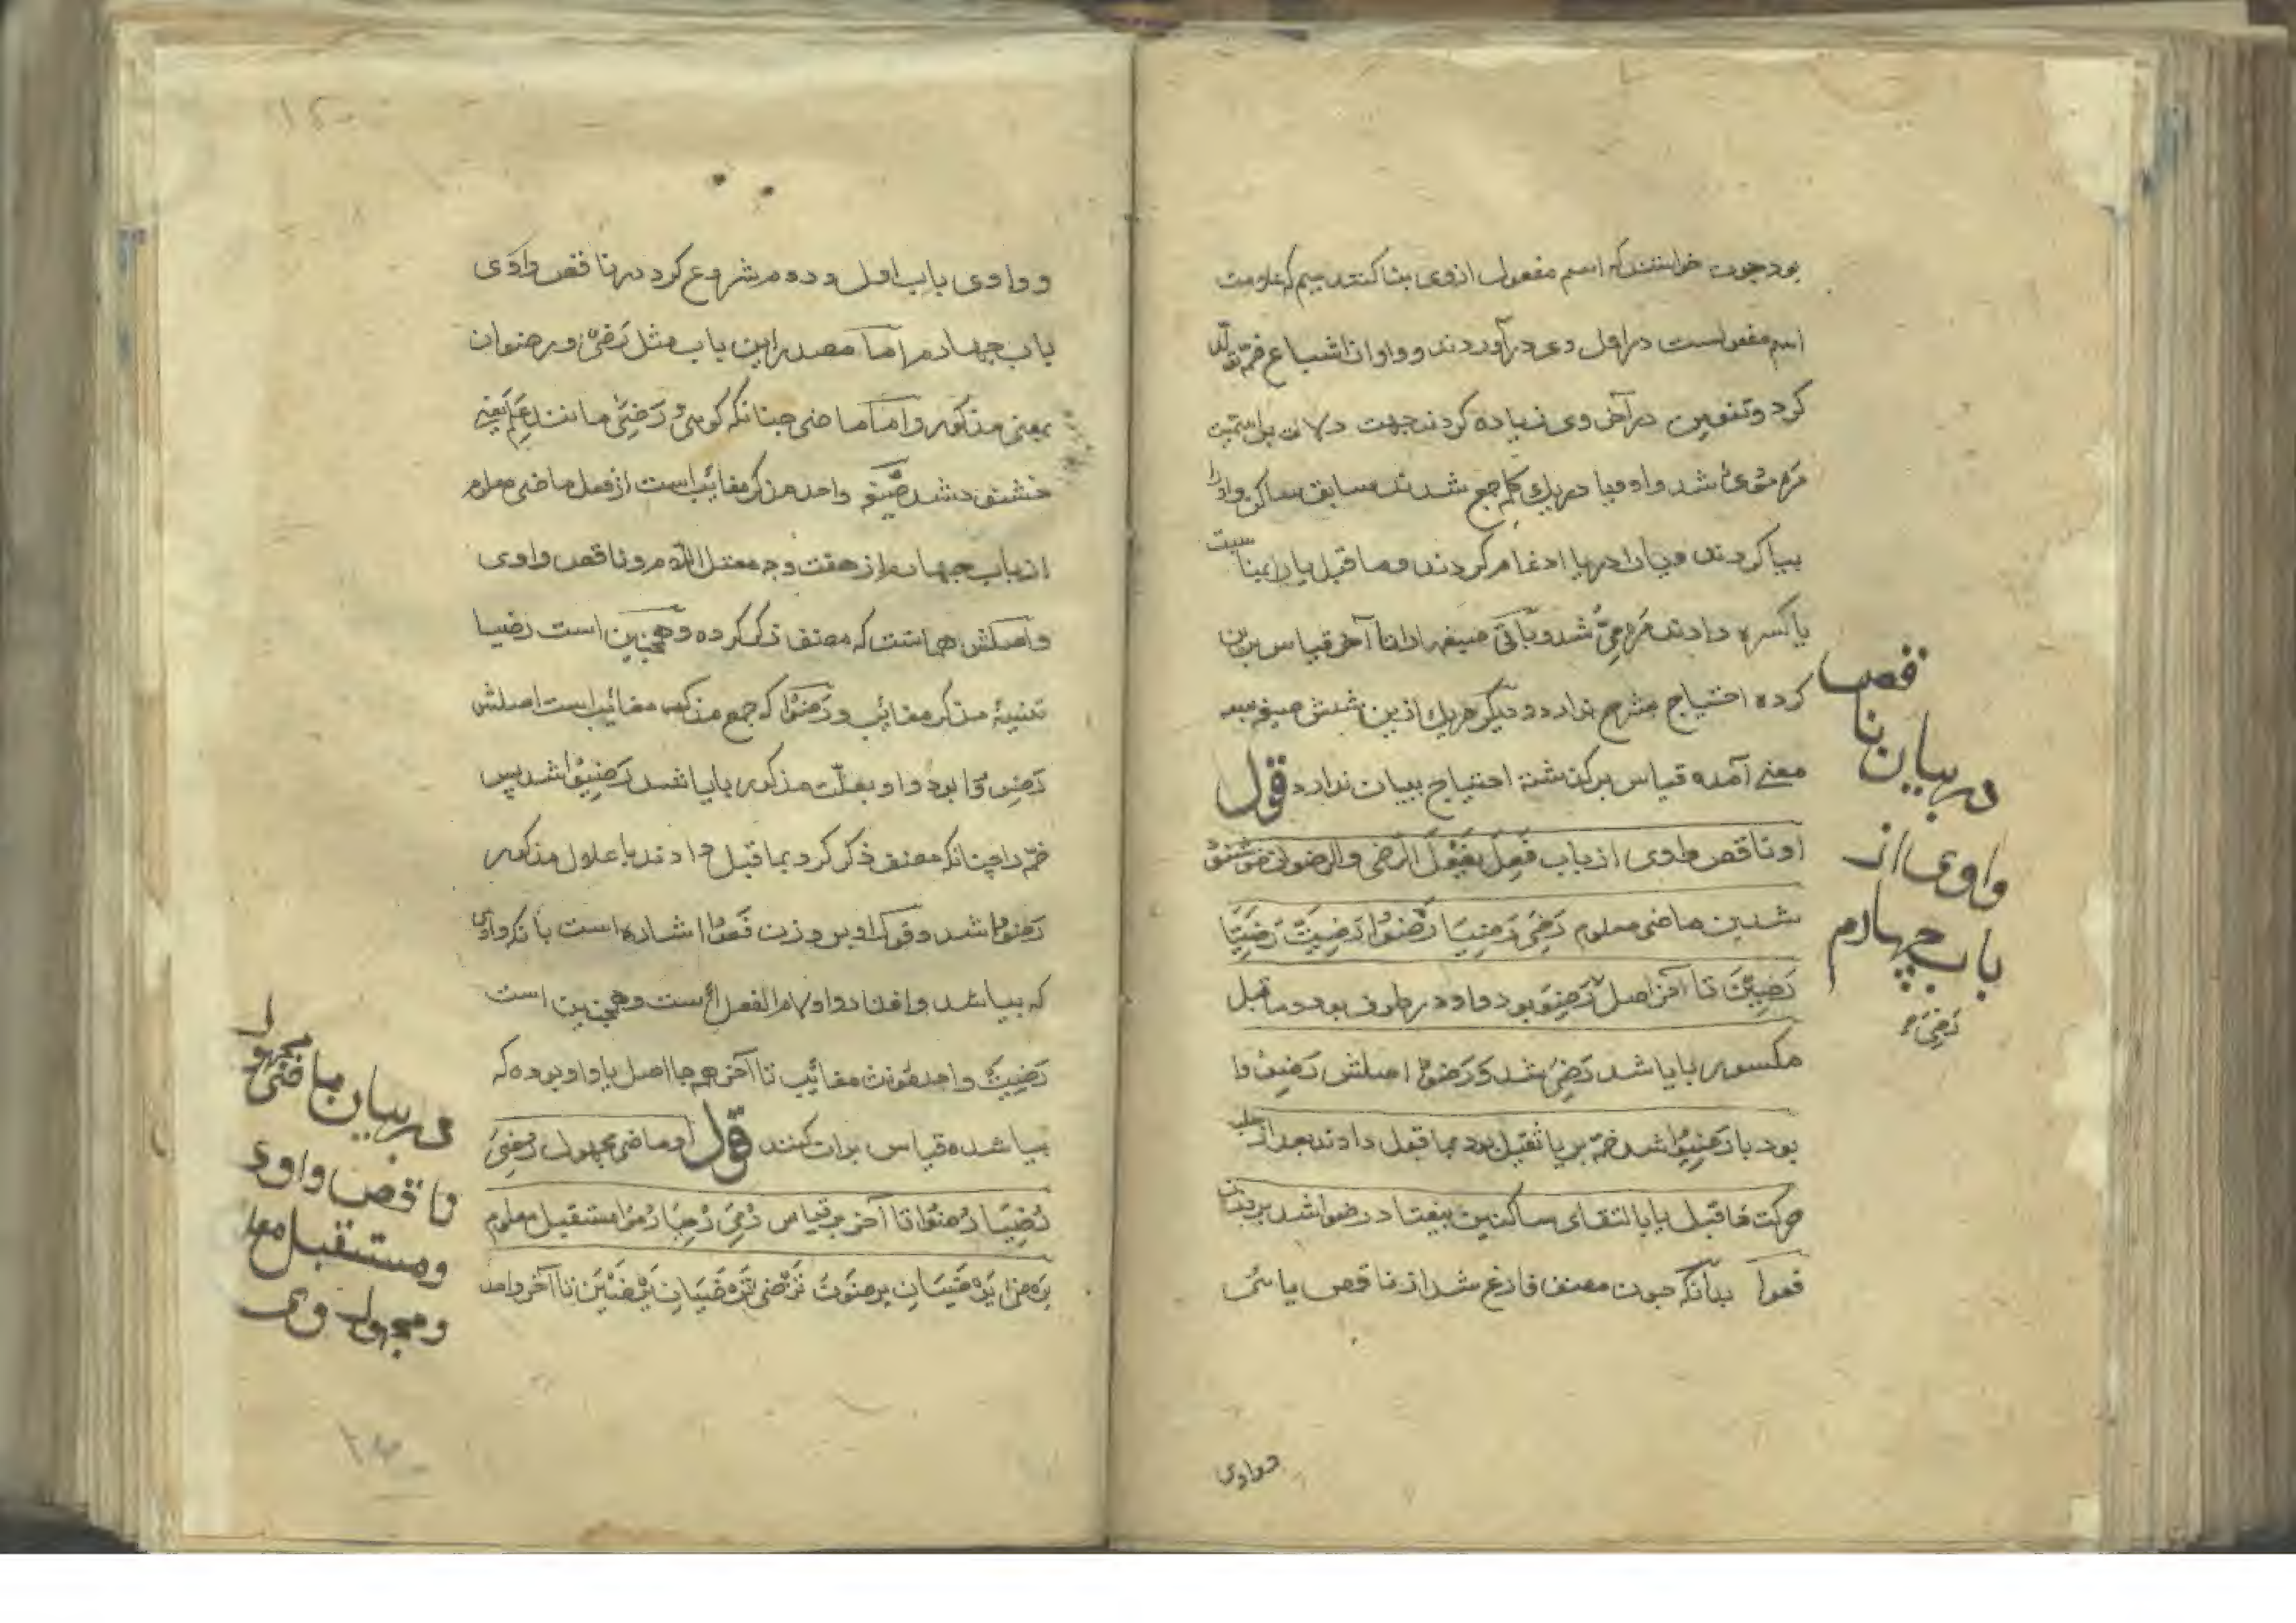 بود چون خواستند که اسم مفعول از وی بنا کنند میم که علامت
اسم مفعولست در اول وی در آوردند و واو از اشباع ضمه تولد
کرد و تنوین در آخر وی زیاده کردند جهت دلالت بر اسمیت
مَرْمُویٌ شد واو و یا در یک کلمه جمع شدند سابق ساکن واو را
بیا کردند و یا را در یا ادغام کردند و ما قبل یا را بمناسبت
یا کسره دادند مَرْمِیٌّ شد و باقی صیغها را تا آخر قیاس برین
کرده احتیاج بشرح ندارد و دیگر هر یک ازین شش صیغه بسه
معنے آمده قیاس بر گذشته احتیاج ببیان ندارد قوله
او ناقص واوی از باب فَعِلَ یَفْعَلُ الرضی والرضوان خوشنود
شدن ماضی معلوم رَضِیَ رَضِیَا رَضُوْا رَضِیَتْ رَضِیَتَا
رَضِیْنَ تا آخر اصل رَضِیَ رَضِوَ بود واو در طرف بود و ما قبل
مکسور بایا شد رَضِیَ شد و رَضُوْا اصلش رَضِوُوا
بود با رَضِیُوْا شد ضمه بر یا ثقیل بود بما قبل دادند بعد از سلب
حرکت ما قبل یا بالتقای ساکنین بیفتاد رضوا شد بر وزن
فعوا بدانکه چون مصنف فارغ شد از ناقص یائی
در بیان ناقص
واوی از
باب چهارم
رَضِیَ
و واوی
و واوی باب اول و دوم شروع کرد در ناقص واوی
باب چهارم اما مصدر این باب مثل رَضِیٌ و رضوان
بمعنی مذکور و اما ماضی چنانکه گوئی رَضِیَ مانند عَلِمَ یعنی
خشنود شد صیغه واحد مذکر مغائب است از فعل ماضی معلوم
از باب چهارم از هفت وجه معتل اللام و ناقص واوی
و اصلش همانست که مصنف ذکر کرده و همچنین است رضیا
تثنیهٔ مذکر مغائب و رَضُوْا که جمع مذکر مغائب است اصلش
رَضِوُوْا بود واو بعلّت مذکور بایا شد رَضِیُوْا شد پس
ضمه را چنانکه مصنف ذکر کرد بما قبل دادند با علال مذکور
رَضُوْا شد و قوله او بر وزن فَعُوْا اشاره است بآنکه واوی
که بیا شد و افتاد واو لام الفعل است و همچنین است
رَضِیَتْ واحد مؤنث مغائب تا آخر هر جا اصل یا واو بوده که
بیا شده قیاس بران کنند قوله او ماضی مجهول رُضِیَ
رُضِیَا رُضُوْا تا آخر بر قیاس رُمِیَ رُمِیَا رُمُوْا مستقبل معلوم
یَرْضَی یَرْضَیَانِ یَرْضَوْنَ تَرْضَی تَرْضَیَانِ یَرْضَیْنَ تا آخر واحد
در بیان ماضی مجهول
ناقص واوی
و مستقبل معلو
و مجهول وی